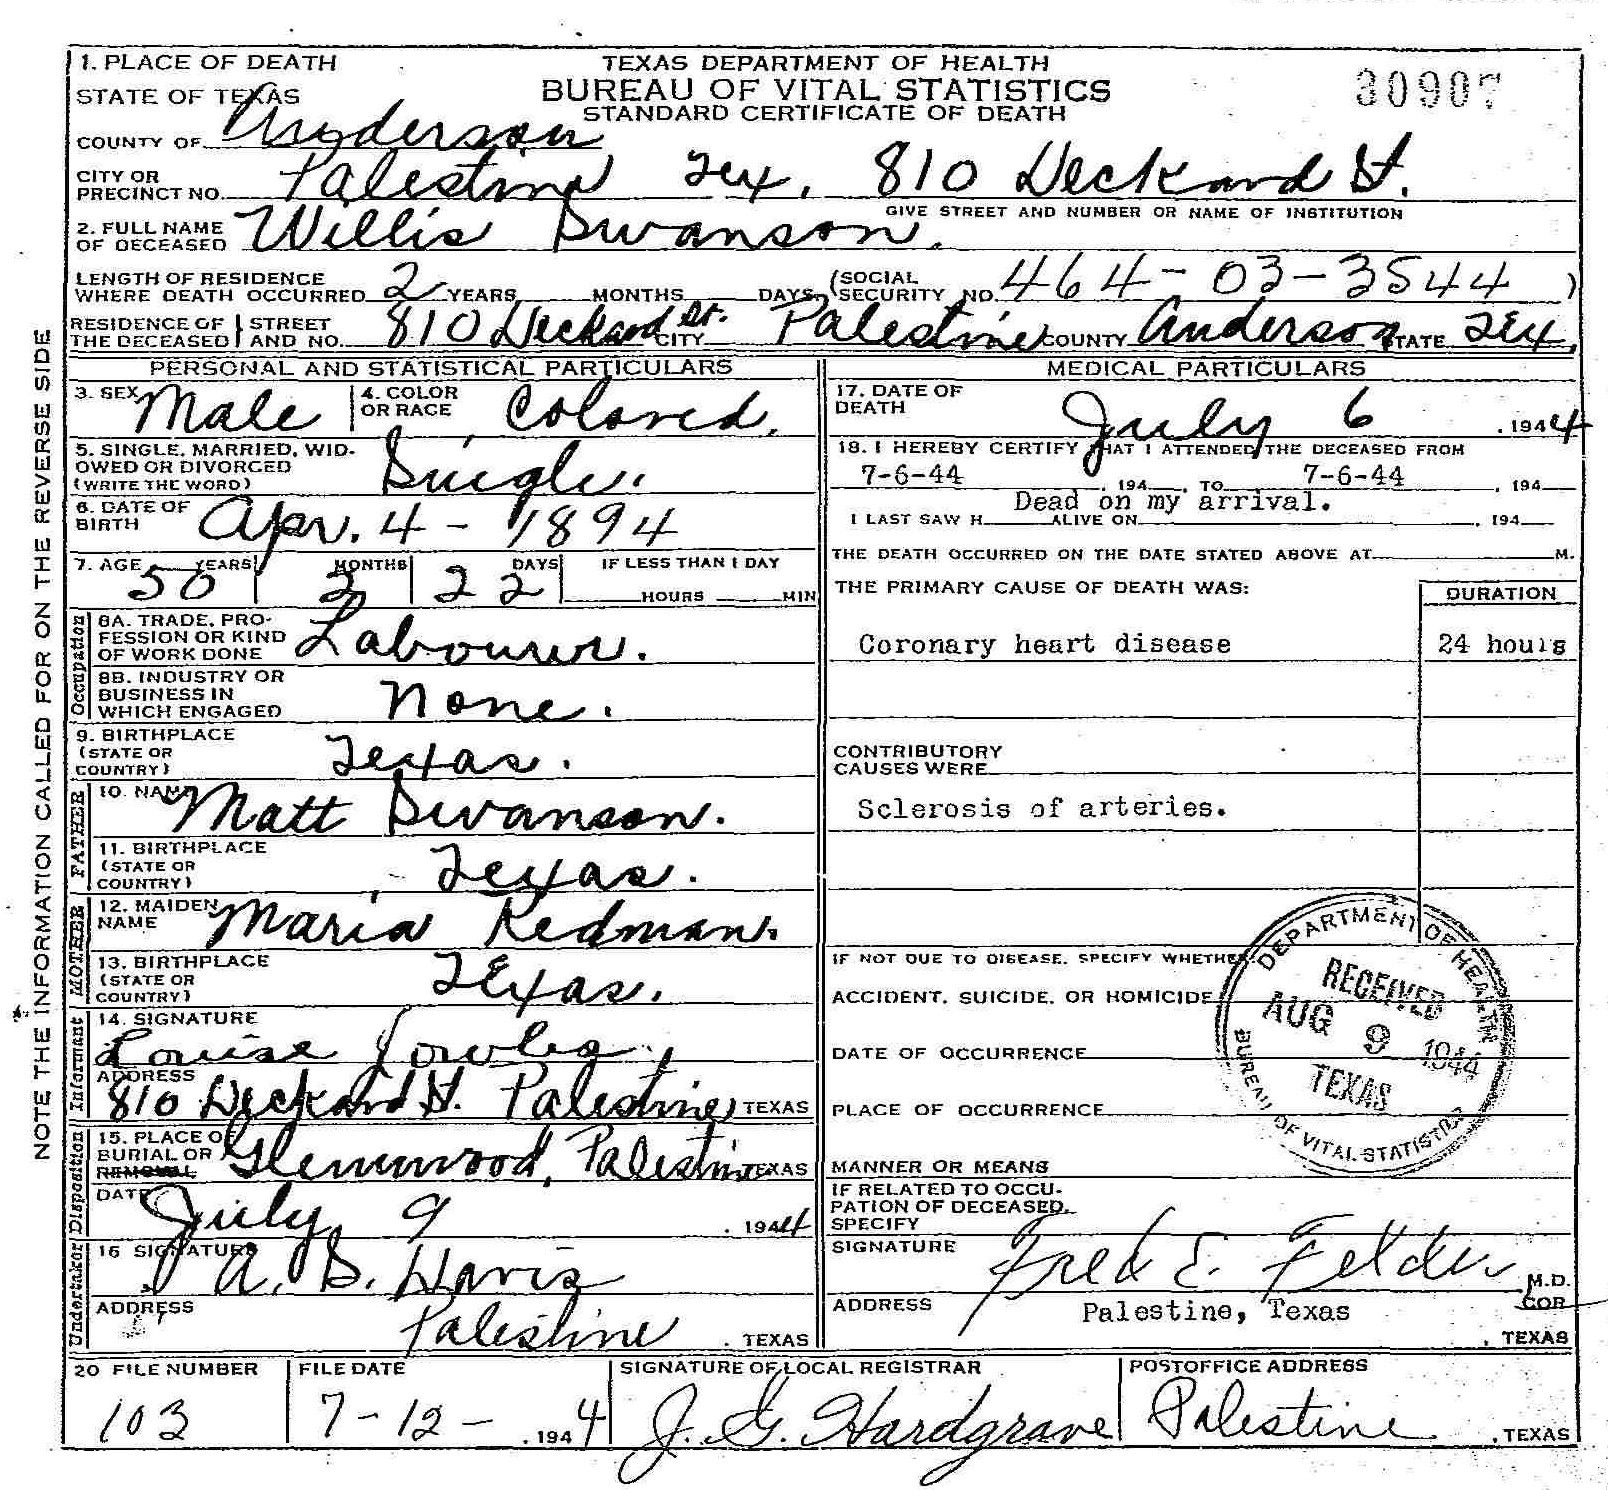 1. PLACE OF DEATH
STATE OF TEXAS
COUNTY OF Anderson
TEXAS DEPARTMENT OF HEALTH
BUREAU OF VITAL STATISTICS
STANDARD CERTIFICATE OF DEATH
30907
CITY OR PRECINCT NO. Palestine Tex. 810 Deckard St.
GIVE STREET AND NUMBER OR NAME OF INSTITUTION
2. FULL NAME OF DECEASED Willis Swanson.
LENGTH OF RESIDENCE WHERE DEATH OCCURRED 2 YEARS MONTHS DAYS (SOCIAL SECURITY NO. 464-03-3544)
RESIDENCE OF THE DECEASED STREET AND NO. 810 Deckard St. CITY Palestine COUNTY Anderson STATE Tex.
NOTE THE INFORMATION CALLED FOR ON THE REVERSE SIDE
PERSONAL AND STATISTICAL PARTICULARS
3. SEX Male 4. COLOR OR RACE Colored.
5. SINGLE, MARRIED, WIDOWED OR DIVORCED (WRITE THE WORD) Single.
6. DATE OF BIRTH Apr. 4 - 1894
7. AGE 50 YEARS 2 MONTHS 22 DAYS IF LESS THAN 1 DAY HOURS MIN
Occupation
8A. TRADE, PROFESSION OR KIND OF WORK DONE Labourer.
8B. INDUSTRY OR BUSINESS IN WHICH ENGAGED None.
9. BIRTHPLACE (STATE OR COUNTRY) Texas.
FATHER
10. NAME Matt Swanson.
11. BIRTHPLACE (STATE OR COUNTRY) Texas.
MOTHER
12. MAIDEN NAME Maria Redman.
13. BIRTHPLACE (STATE OR COUNTRY) Texas.
Informant
14. SIGNATURE Louise
ADDRESS 810 Deckard St. Palestine TEXAS
Disposition
15. PLACE OF BURIAL OR REMOVAL Glennwood, Palestine TEXAS
DATE July 9 1944
Undertaker
16 SIGNATURE A. S. Davis
ADDRESS Palestine, TEXAS
MEDICAL PARTICULARS
17. DATE OF DEATH July 6, 1944
18. I HEREBY CERTIFY THAT I ATTENDED THE DECEASED FROM
7-6-44, 194 TO 7-6-44, 194
Dead on my arrival.
I LAST SAW H ALIVE ON , 194
THE DEATH OCCURRED ON THE DATE STATED ABOVE AT M.
THE PRIMARY CAUSE OF DEATH WAS: DURATION
Coronary heart disease 24 hours
CONTRIBUTORY CAUSES WERE
Sclerosis of arteries.
IF NOT DUE TO DISEASE, SPECIFY WHETHER
ACCIDENT, SUICIDE, OR HOMICIDE
DATE OF OCCURRENCE
PLACE OF OCCURRENCE
MANNER OR MEANS
DEPARTMENT OF HEALTH
RECEIVED
AUG 9 1944
TEXAS
BUREAU OF VITAL STATISTICS
IF RELATED TO OCCUPATION OF DECEASED, SPECIFY
SIGNATURE Fred E. Felder M.D.
COR
ADDRESS Palestine, Texas , TEXAS
20 FILE NUMBER 103
FILE DATE 7-12-, 1944
SIGNATURE OF LOCAL REGISTRAR J. G. Hardgrave
POSTOFFICE ADDRESS Palestine, TEXAS